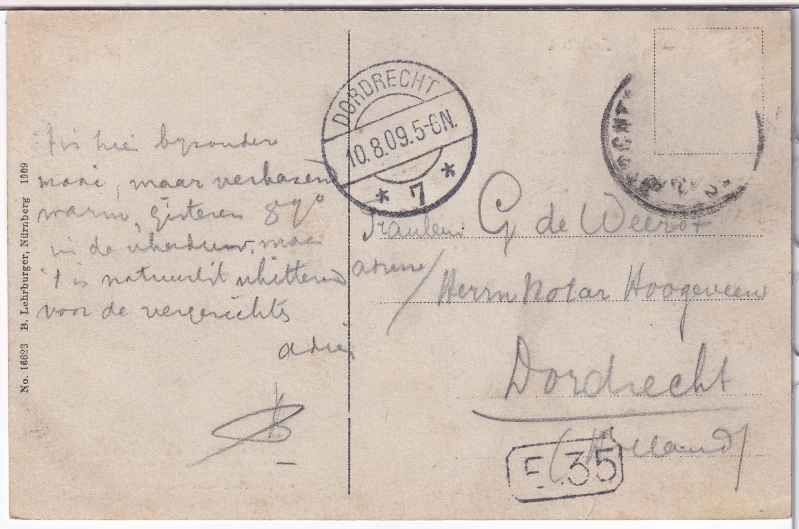 No. 16623 B. Lehrburger, Nürnberg 1909
't is hier byzonder
mooi, maar verbazend
warm, gisteren 89°
in de schaduw, maar
't is natuurlijk schitterend
voor de vergezichts
adieu
DORDRECHT
10.8.09.5-6N.
* 7 *
Fräulein G. de Weerdt
adresse/
Herrn Notar Hoogeveen
Dordrecht
(Holland)
E 35